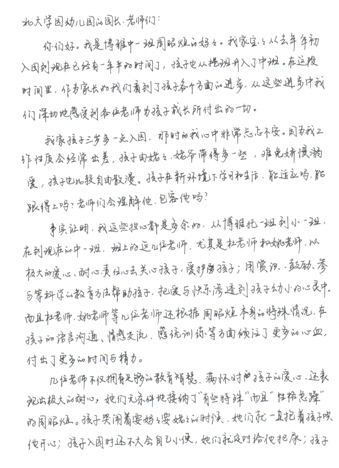 北大学园幼儿园的园长、老师们:
你们好。我是博雅中一班周昭煊的妈妈。我家宝宝从去年年初
入园到现在已经有一年半的时间了,孩子也从托班升入了中班。在这段
时间里,作为家长的我们看到了孩子各个方面的进步,从这些进步中我
们深切地感受到各位老师为孩子成长所付出的一切。
我家孩子三岁多一点入园,那时的我心中非常忐忑不安。因为我工
作性质会经常出差,孩子由姥姥、姥爷带得多一些,难免娇惯溺
爱,孩子也比较自由散漫。孩子在新环境下学习和生活,能适应吗,能
跟得上吗?老师们会理解他、包容他吗?
事实证明,我这些担心都是多余的,从博雅托一班到小一班,
在到现在的中一班,班上的这几位老师,尤其是杜老师和她老师,以
极大的爱心、耐心、责任心去关心孩子,爱护孩子;用赏识、鼓励、参
与等科学的教育方法帮助孩子,把爱与快乐渗透到孩子幼小的心灵中。
而且杜老师、她老师等几位老师还根据周昭煊本身的特殊情况,在
孩子的语言沟通、情感交流、感统训练等方面倾注了更多的心血,
付出了更多的时间与精力。
几位老师不仅拥有足够的教育智慧,满怀对孩子的爱心,还表
现出极大的耐心,她们无条件地接纳了“有些特殊”而且“性格急躁”
的周昭煊。孩子哭闹着要妈妈要姥姥的时候,她们就一直抱着孩子哄
他开心;孩子入园时还不大会自己小便,她们就及时给他把尿;孩子